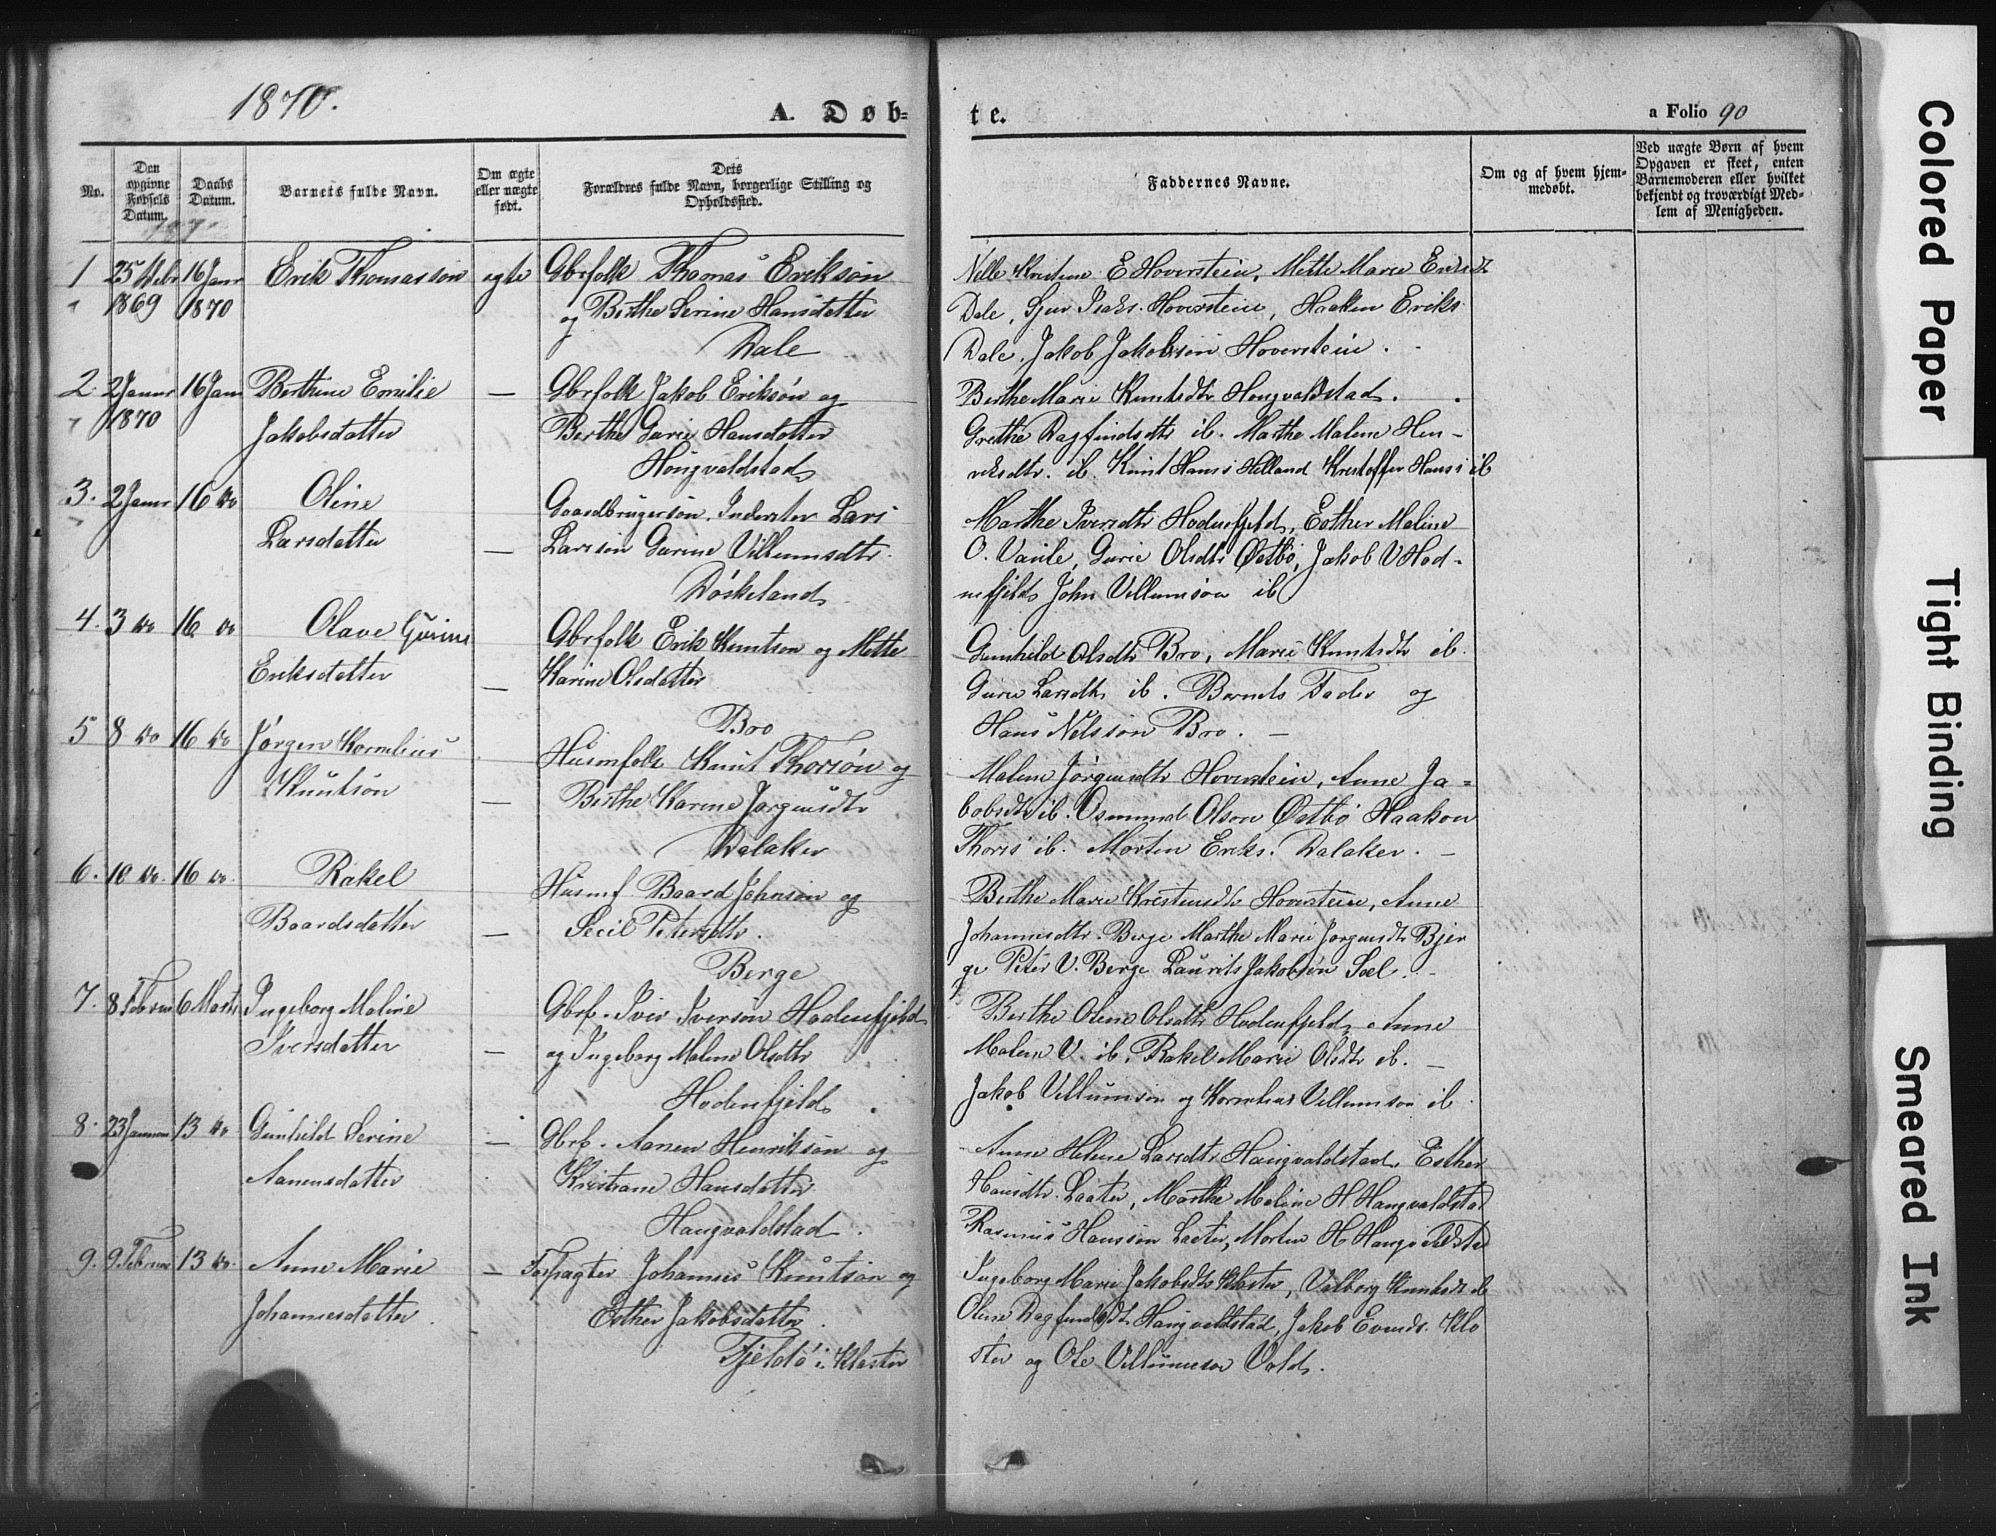 1870.
A. Døb=
te.
a Folio 90
No.
Den opgivne Fødsels Datum.
Daabs Datum.
Barnets fulde Navn.
Om ægte eller uægte født.
Dets Forældres fulde Navn, borgerlige Stilling og Opholdssted.
Faddernes Navne.
Om og af hvem hjem-
medøbt.
Ved uægte Børn af hvem
Opgaven er skeet, enten
Barnemoderen eller hvilket
bekjendt og troværdigt Med-
lem af Menigheden.
1 25 16 Janr Erik Thomassøn ægte Gbrfolk Thomas Eriksøn
1869 1870 og Birthe Serine Hansdatter
Dale
Kristine E Hoverstein, Mette Marie
Dale, Sjur Isaks. Hoverstein, Haaken Eriks
Dale, Jakob Jakobsøn Hoverstein.
2. 2 Janur 16 Jan Berthine Emilie — Gbrfolk Jakob Eriksøn og
1870 Jakobsdatter Berthe Gurie Hansdatter
Hougvaldstad
Birthe Marie Knutsdtr Hougvaldstad.
Grethe Dagfindsdtr ib. Marthe Malene Hen-
riksdtr. ib. Knut Hans: Helland Kristoffer Hans: ib
3. 2 Janur 16 do Oline
Larsdatter —
Gaardbrugersøn, Inderster Lars
Larssøn Gurine Villumsdtr.
Røskeland
Marthe Iversdtr Hodnefjeld, Esther Maline
O. Gurie Olsdtr Østbø, Jakob V Hod-
nefjeld John Villumsøn ib
4. 3 do 16 do Olave Gurine
Eriksdatter —
Gbrfolk Erik Knutsøn og Mette
Karine Olsdatter
Bro
Gunhild Olsdtr Bro, Marie Knutsdtr ib.
Gurie Larsdtr ib. Barnets Fader og
Hans Nelssøn Bro. —
5 8 do 16 do Jørgen Kornelius
Knutsøn —
Husmfolk Knut Thorsøn og
Birthe Karine Jørgensdtr
Dalaker
Malene Jørgensdtr Hoverstein, Anne Ja=
kobsdtr ib. Osmund Olson Østbø Haakon
Thoris ib. Morten Eriks. Dalaker. —
6. 10 do. 16 do. Rakel
Baardsdatter —
Husmf Baard Johnson og
Secil Petersdtr.
Berge
Berthe Marie Kristensdtr Hoverstein, Anne
Johannesdtr. Berge Marthe Marie Jørgensdtr Bjer
ge Peter V. Berge Laurits Jakobsøn Sæl. —
7. 8 6 Marts Ingeborg Maline
Iversdatter —
Gbrf. Iver Iversøn Hodnefjeld
og Ingeborg Malene Olsdtr
Hodnefjeld
Birthe Oline Olsdtr Hodnefjeld, Anne
Malene V. ib. Rakel Marie Olsdtr ib. —
Jakob Villumsøn og Kornelius Villumsøn ib
8. 23 13 do Gunhild Serine —
Aanensdatter
Gbrf. Aanen Henriksøn og
Kristiane Hansdatter
Haugvaldstad
Anne Helene Larsdtr Haugvaldstad, Esther
Hansdtr. Laater, Marthe Maline H Haugvaldstad
Rasmus Hanssøn Laater, Morten H
9. 9 13 do. Anne Marie —
Johannesdatter.
Forpagter Johannes Knutsøn og
Esther Jakobsdatter.
Fjeldø i Kloster
Ingeborg Marie Jakobsdtr Kloster, Valborg Knutsdtr ib
Oline Dagfindsdtr Haugvaldstad, Jakob Klo
ster og Ole Villumsøn Vold.
Colored Paper
Tight Binding
Smeared Ink